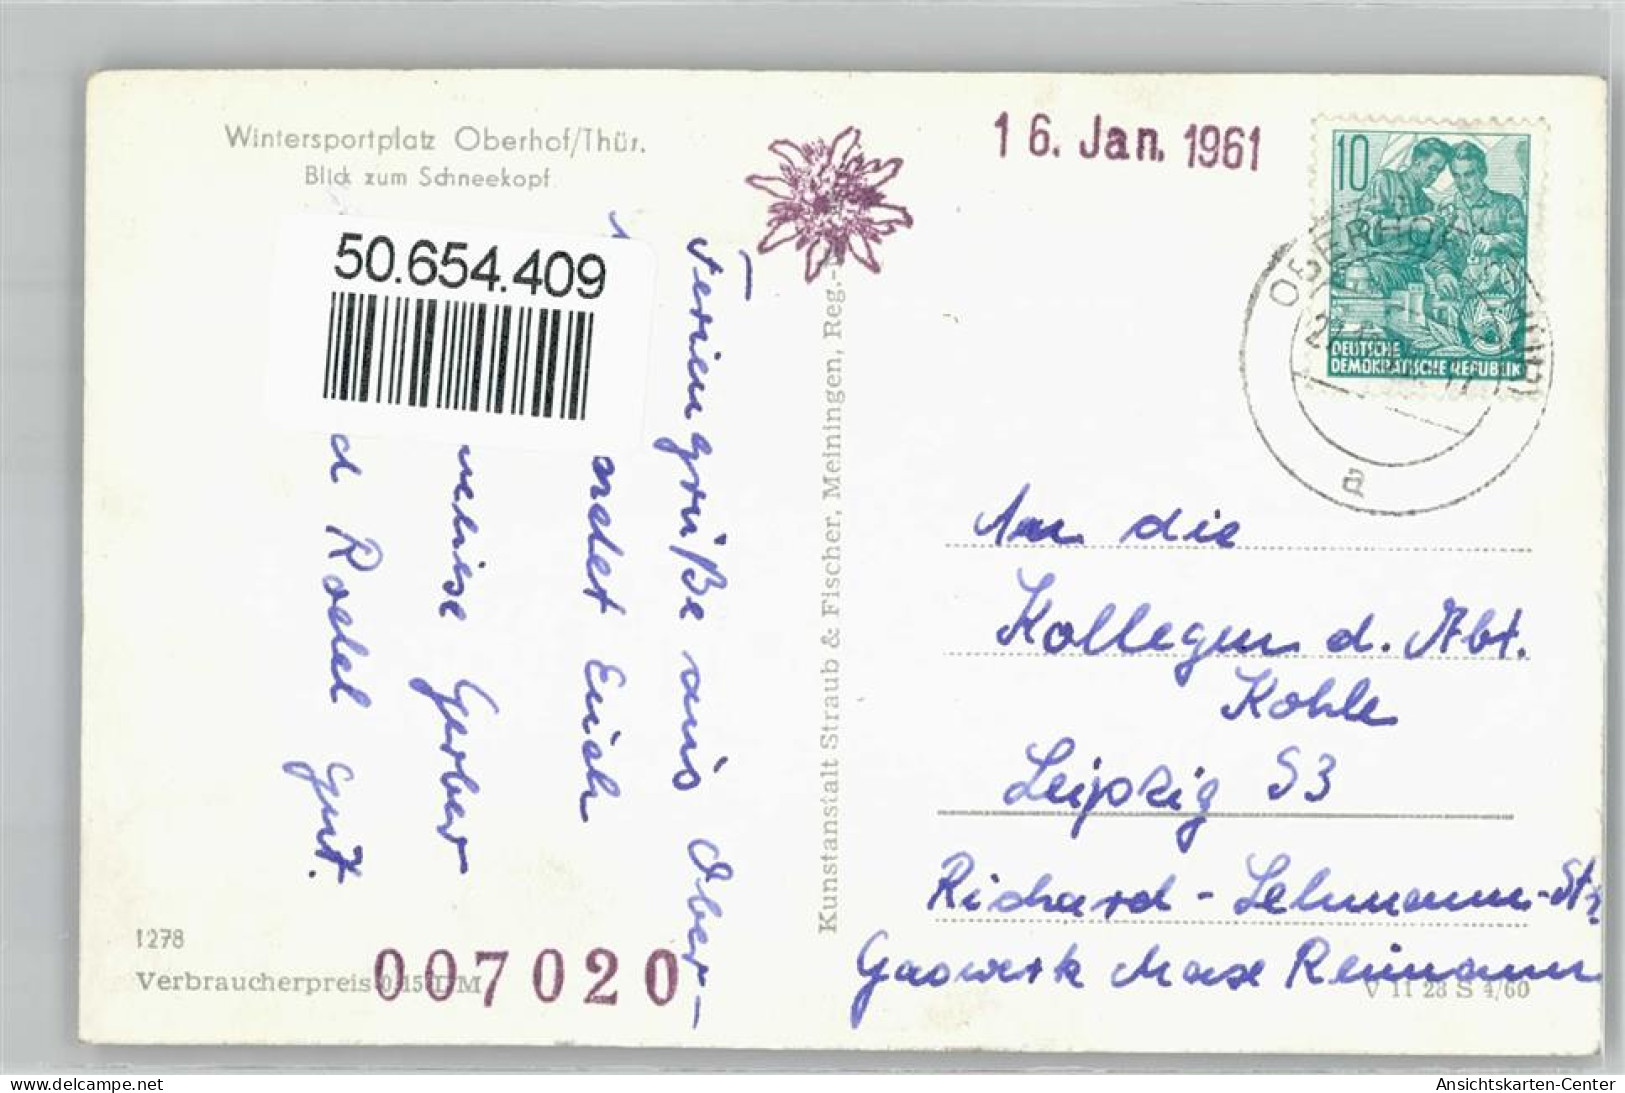 Wintersportplatz Oberhof/Thür.
Blick zum Schneekopf
50.654.409
16. Jan. 1961
10
DEUTSCHE
DEMOKRATISCHE REPUBLIK
OBERHOF
a
Feriengrüße aus Ober-
ndet Euch
Gerber
d Rodel gut.
Kunstanstalt Straub & Fischer, Meiningen, Reg.-
An die
Kollegen d. Abt.
Kohle
Leipzig S3
Richard-Lehmann-Str
Gaswerk Max Reimann
1278
Verbraucherpreis 0,15 DM
007020
V 11 28 S 4/60
Ansichtskarten-Center
www.delcampe.net